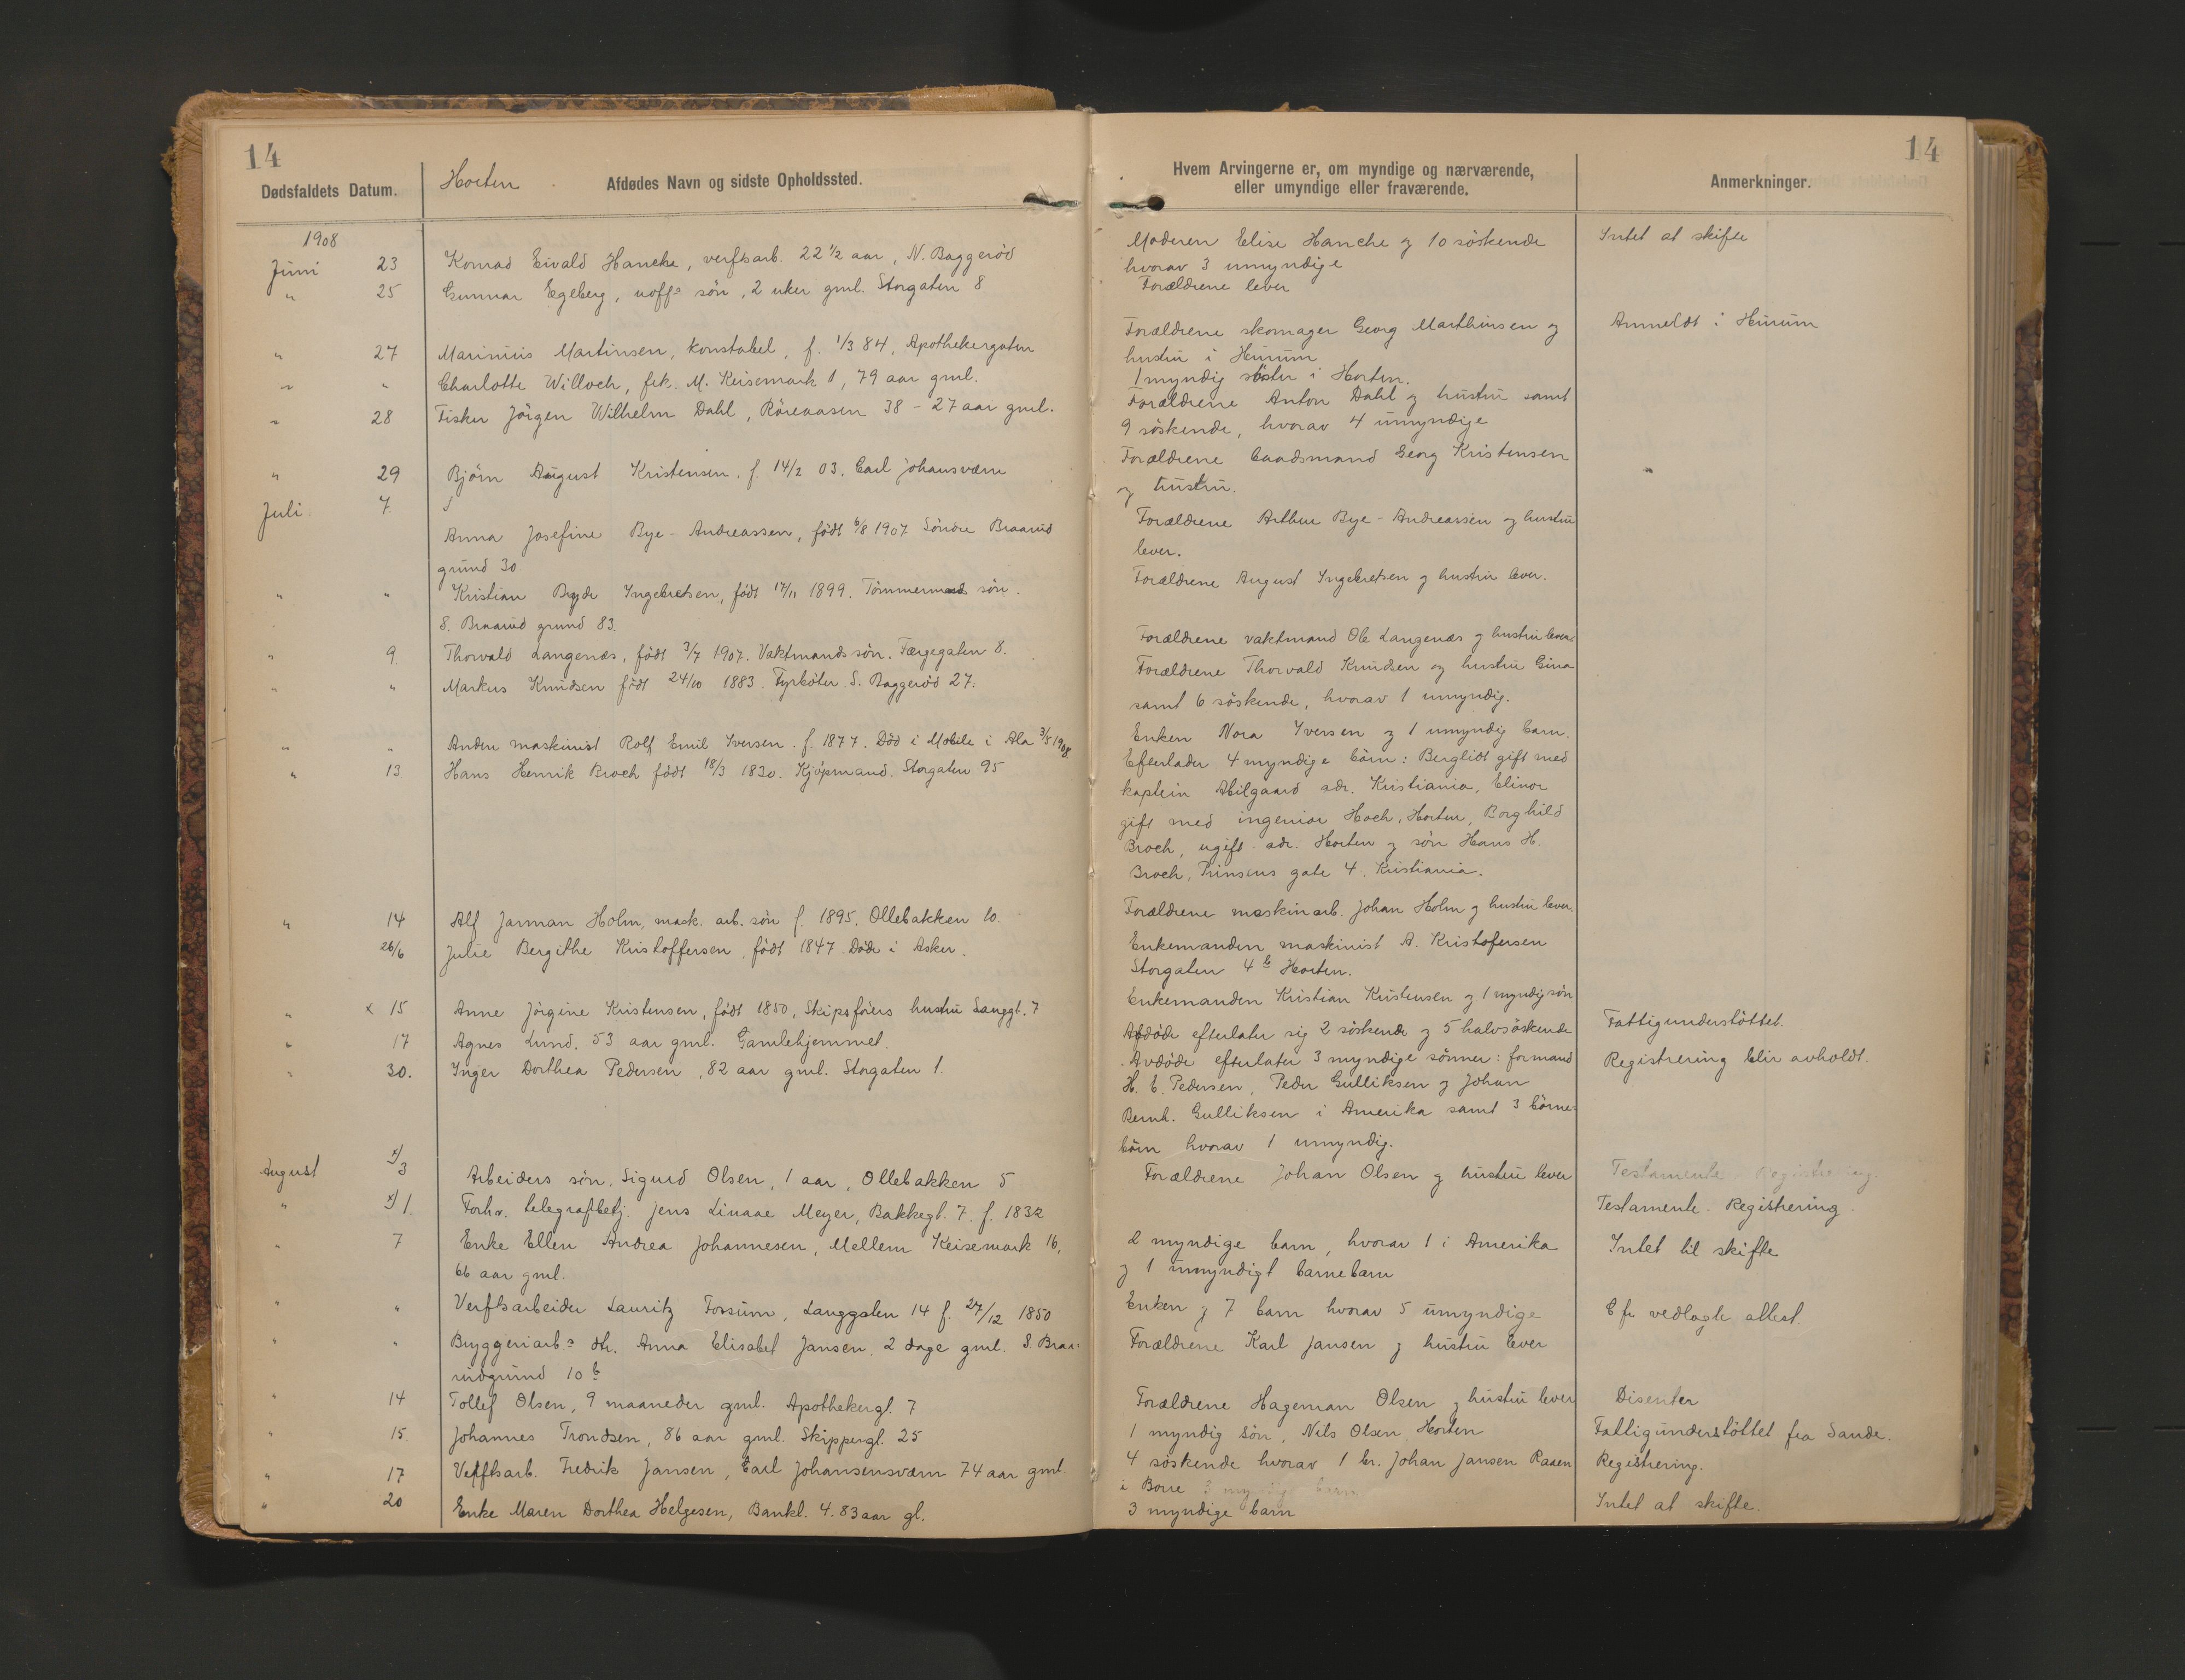 14
Dødsfaldets Datum.
Horten
Afdødes Navn og sidste Opholdssted.
1908
Juni 23 Konrad Eivald Hancke, verftsarb. 22 ½ aar, N. Baggerød
" 25 Gunnar Egeberg, uoff.s søn, 2 uker gml. Storgaten 8
" 27 Marinius Martinsen, konstabel, f. 1/3 84, Apothekergaten
" " Charlotte Willoch, frk. M. Keisemark 1, 79 aar gml.
" 28 Fisker Jörgen Wilhelm Dahl, Röreaasen 38 - 27 aar gml.
" 29 Björn August Kristensen, f. 14/2 03. Carl Johansværn
Juli 7
Anna Josefine Bye-Andreassen, født 6/8 1907 Söndre Braarud
grund 30
" " Kristian Bryde Ingebretsen, født 17/11 1899. Tömmermands sön.
S. Braarud grund 83.
" 9. Thorvald Langenæs, født 3/7 1907. Vaktmands sön. Færgegaten 8.
" " Markus Knudsen født 24/10 1883. Fyrböter S. Baggeröd 27.
" " Anden maskinist Rolf Emil Iversen. f. 1877. Död i Mobile i Ala 3/5 1908.
" 13 Hans Henrik Broch født 18/3 1830. Kjöpmand. Storgaten 95
" 14 Alf Jarman Holm, mask. arb. sön f. 1895. Ollebakken 10.
26/6 Julie Bergithe Kristoffersen, født 1847. Döde i Asker.
" x 15 Anne Jörgine Kristensen, født 1850, Skipsförers hustru Langgt. 7
" 17 Agnes Lund, 53 aar gml. Gamlehjemmet.
" 30. Inger Dorthea Pedersen, 82 aar gml. Storgaten 1.
August x/3 Arbeiders sön, Sigurd Olsen, 1 aar, Ollebakken 5
" x/1. Forhv. telegrafbetj. Jens Linaae Meyer, Bakkegt. 7. f. 1832
" 7 Enke Ellen Andrea Johannesen, Mellem Keisemark 16,
66 aar gml.
" " Verftsarbeider Lauritz Forsum, Langgaten 14 f. 27/12 1850
" " Bryggeriarb.s dt. Anna Elisabet Jansen, 2 dage gml. S. Braa-
rudgrund 10 b
" 14 Tollef Olsen, 9 maaneder gml. Apothekergt. 7
" 15. Johannes Trondsen, 86 aar gml. Skippergt. 25
" 17 Verftsarb. Fredrik Jansen, Carl Johansensværn 74 aar gml.
" 20 Enke Maren Dorthea Helgesen, Bankl. 4. 83 aar gl.
14
Hvem Arvingerne er, om myndige og nærværende,
eller umyndige eller fraværende.
Anmerkninger.
Moderen Elise Hancke og 10 söskende Intet at skifte
hvorav 3 umyndige
Forældrene lever
Forældrene skomager Georg Marthinsen og Anmeldt i Hurum
hustru i Hurum
1 myndig söster i Horten.
Forældrene Anton Dahl og hustru samt
9 söskende, hvorav 4 umyndige
Forældrene baadsmand Georg Kristensen
og hustru.
Forældrene Arthur Bye-Andreassen og hustru
lever.
Forældrene August Ingebretsen og hustru lever.
Forældrene vaktmand Ole Langenæs og hustru lever.
Forældrene Thorvald Knudsen og hustru Gina
samt 6 söskende, hvorav 1 umyndig.
Enken Nora Iversen og 1 umyndig barn.
Efterlader 4 myndige börn: Berglidt gift med
kaptein Abilgaard adr. Kristiania, Elinor
gift med ingeniör Hoch, Horten, Borghild
Broch, ugift adr. Horten og sön Hans H.
Broch, Prinsens gate 4. Kristiania.
Forældrene maskinarb. Johan Holm og hustru lever.
Enkemanden maskinist A. Kristofersen
Storgaten 4 b Horten.
Enkemanden Kristian Kristensen og 1 myndig sön
Avdöde efterlater sig 2 söskende og 5 halvsöskende Fattigunderstöttet.
Avdöde efterlater 3 myndige sönner: formand Registrering blir avholdt.
H. E. Pedersen, Peder Gulliksen og Johan
Bernh. Gulliksen i Amerika samt 3 börne-
börn hvorav 1 umyndig.
Forældrene Johan Olsen og hustru lever Testamente. Registrering.
Testamente. Registrering.
2 myndige barn, hvorav 1 i Amerika Intet til skifte
og 1 umyndigt barnebarn
Enken og 7 barn hvorav 5 umyndige Cfr vedlagte attest.
Forældrene Karl Jansen og hustru lever
Forældrene Hageman Olsen og hustru lever Disenter
1 myndig sön, Nils Olsen Horten Fattigunderstöttet fra Sande.
4 söskende hvorav 1 br. Johan Jansen Raaen Registrering.
i Borre 3 myndige barn
3 myndige barn Intet at skifte.